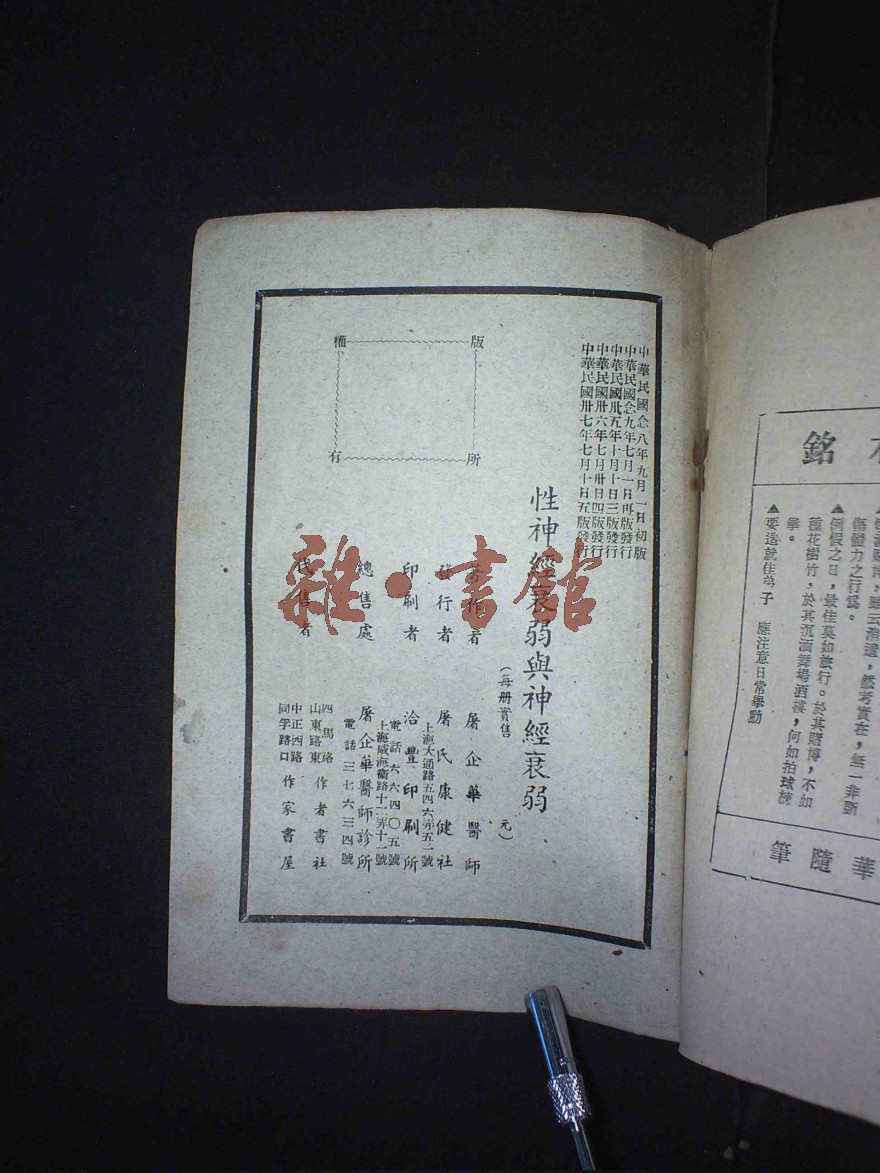 中華民國念八年九月一日初版
中華民國念九年七月一日再版發行
中華民國卅五年十月十日三版發行
中華民國卅六年七月卅日四版發行
中華民國卅七年七月十日五版發行
性神經衰弱與神經衰弱
(每册實售 元)
著作者 屠企華醫師
發行者 屠氏康健社
上海大通路五四六弄五一號
電話六六四〇五號
印刷者 洽豐印刷所
上海威海衛路十二弄十一號
總售處 屠企華醫師診所
電話三七六三四號
代售者
四馬路
山東路東 作者書社
中正西路
同孚路口 作家書屋
版權所有
雜·書館
銘
傷體力之行爲。
▲例假之日,最佳莫如旅行。於其賭博,不如
種花樹竹,於其沉湎舞場酒樓,何如拍球練
拳。
▲要造就佳弟子 應注意日常舉動
華隨筆